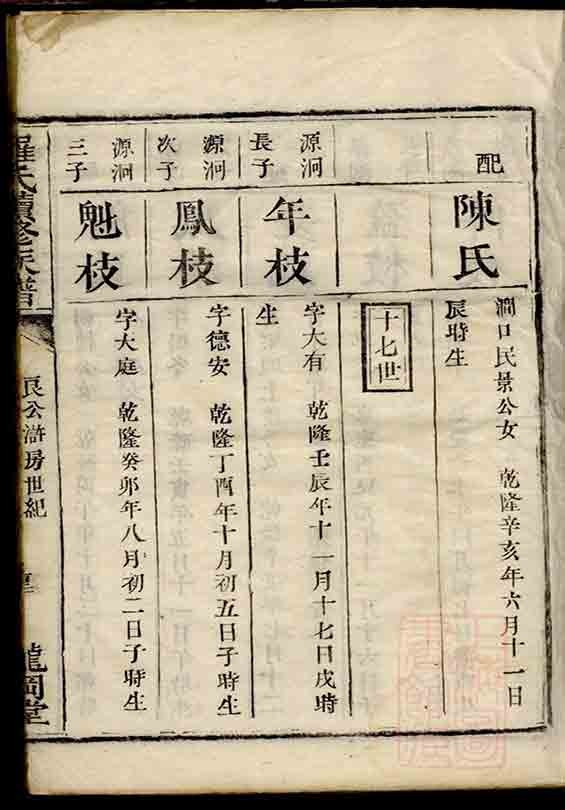 配
陳氏
澗口民景公女　乾隆辛亥年六月十一日
辰時生
十七世
源泂
長子
年枝
字大有　乾隆壬辰年十一月十七日戌時
生
源泂
次子
鳳枝
字德安　乾隆丁酉年十月初五日子時生
源泂
三子
魁枝
字大庭　乾隆癸卯年八月初二日子時生
羅氏續修族譜
良公滸房世紀
龍岡堂